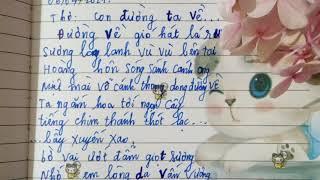 Thơ: con đường ta về...
Đường về gió hát là rơi
Sương long lanh vù vù bên tai
Hoàng hôn song sánh cánh ong
Mải mái vỗ cánh dong đường về
Ta ngắm hoa tới ngọn cây
tiếng chim thanh thót lạc...
... bây xuyến xao,
bờ vai ướt đẫm giọt sương
Nhớ em lòng dạ vấn vương